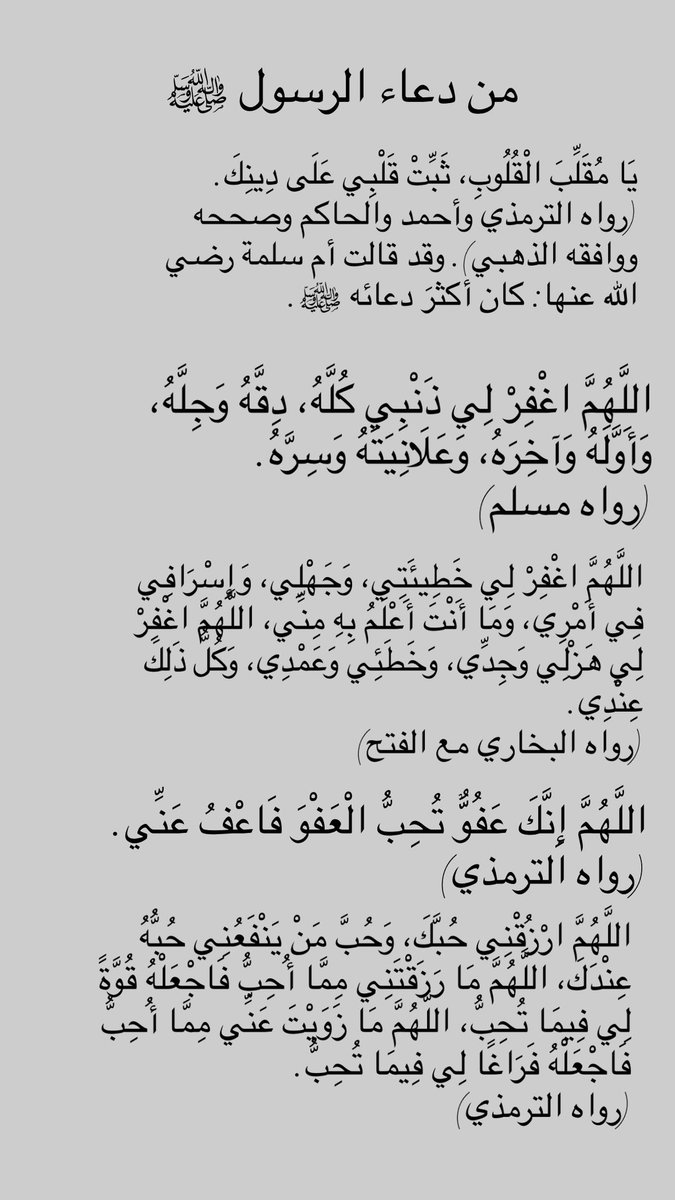 من دعاء الرسول ﷺ
يَا مُقَلِّبَ الْقُلُوبِ، ثَبِّتْ قَلْبِي عَلَى دِينِكَ.
(رواه الترمذي وأحمد والحاكم وصححه
ووافقه الذهبي). وقد قالت أم سلمة رضي
الله عنها: كان أكثرَ دعائه ﷺ.
اللَّهُمَّ اغْفِرْ لِي ذَنْبِي كُلَّهُ، دِقَّهُ وَجِلَّهُ،
وَأَوَّلَهُ وَآخِرَهُ، وَعَلَانِيَتَهُ وَسِرَّهُ.
(رواه مسلم)
اللَّهُمَّ اغْفِرْ لِي خَطِيئَتِي، وَجَهْلِي، وَإِسْرَافِي
فِي أَمْرِي، وَمَا أَنْتَ أَعْلَمُ بِهِ مِنِّي، اللَّهُمَّ اغْفِرْ
لِي هَزْلِي وَجِدِّي، وَخَطَئِي وَعَمْدِي، وَكُلُّ ذَلِكَ
عِنْدِي.
(رواه البخاري مع الفتح)
اللَّهُمَّ إِنَّكَ عَفُوٌّ تُحِبُّ الْعَفْوَ فَاعْفُ عَنِّي.
(رواه الترمذي)
اللَّهُمَّ ارْزُقْنِي حُبَّكَ، وَحُبَّ مَنْ يَنْفَعُنِي حُبُّهُ
عِنْدَكَ، اللَّهُمَّ مَا رَزَقْتَنِي مِمَّا أُحِبُّ فَاجْعَلْهُ قُوَّةً
لِي فِيمَا تُحِبُّ، اللَّهُمَّ مَا زَوَيْتَ عَنِّي مِمَّا أُحِبُّ
فَاجْعَلْهُ فَرَاغًا لِي فِيمَا تُحِبُّ.
(رواه الترمذي)